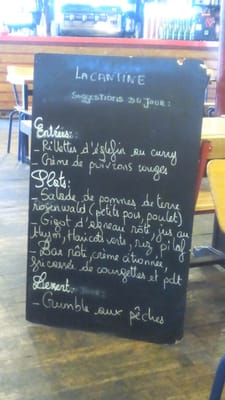 LA CANTINE
SUGGESTIONS DU JOUR:
Entrées:
- Rillettes d'églefin au curry
- Crème de poivrons rouges
Plats:
- Salade de pommes de terre
rosenwald (petits pois, poulet)
- Gigot d'agneau rôti, jus au
thym, Haricots verts, riz pilaf
- Bar rôti, crème citronnée,
fricassée de courgettes et pdt
Dessert:
- Crumble aux pêches